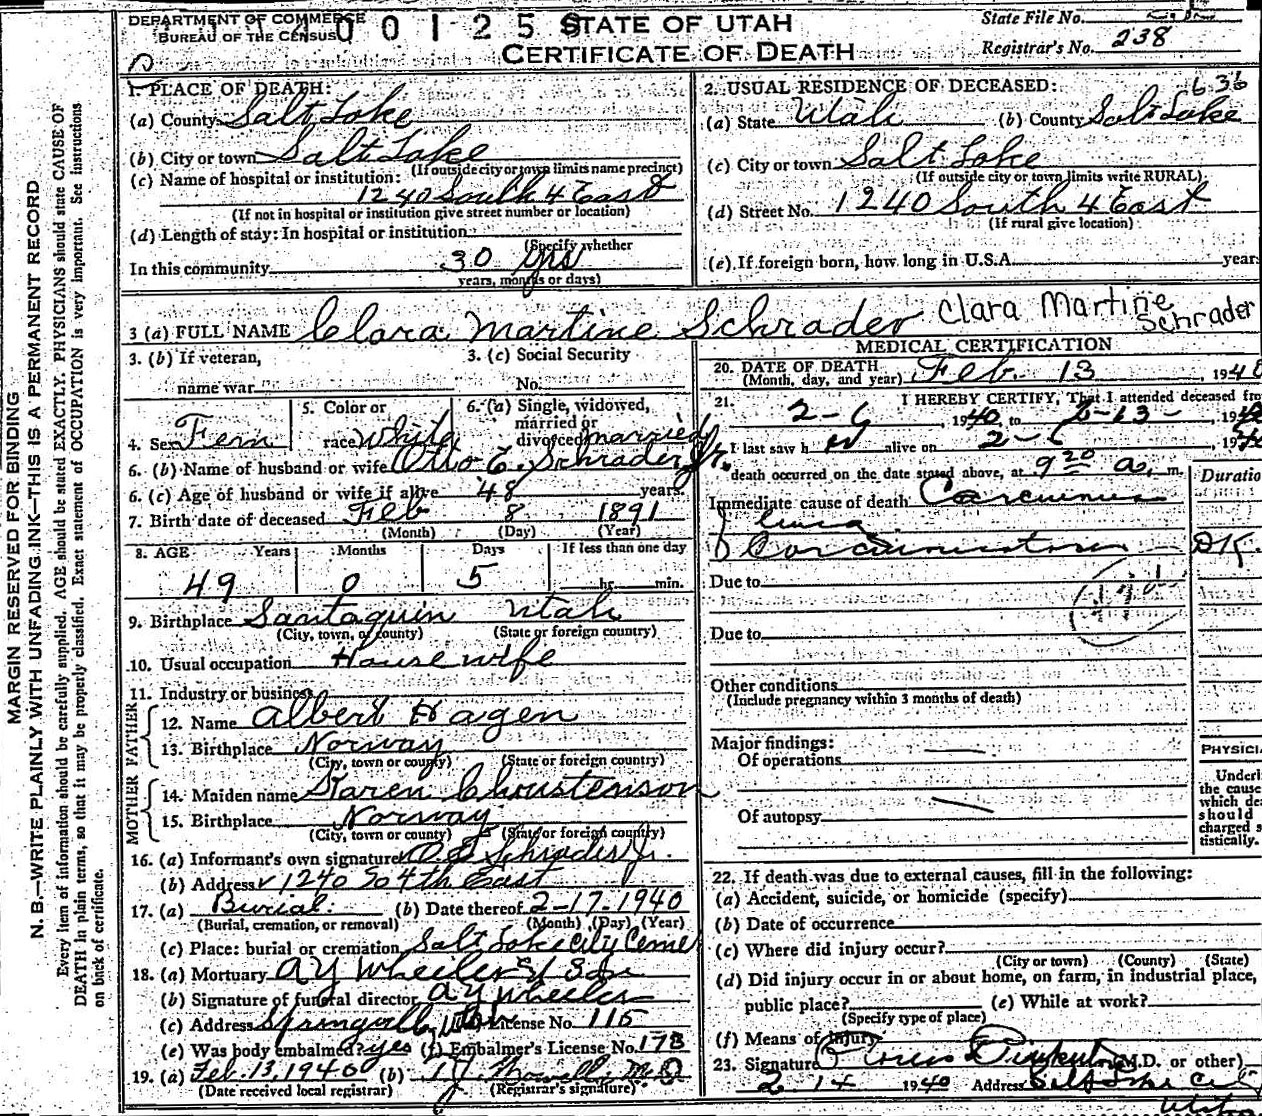 DEPARTMENT OF COMMERCE
BUREAU OF THE CENSUS
0 0 1 2 5
STATE OF UTAH
CERTIFICATE OF DEATH
State File No.
Registrar's No. 238
1. PLACE OF DEATH:
(a) County Salt Lake
(b) City or town Salt Lake
(If outside city or town limits name precinct)
(c) Name of hospital or institution:
1240 South 4 East
(If not in hospital or institution give street number or location)
(d) Length of stay: In hospital or institution
(Specify whether
In this community 30 yrs
years, months or days)
2. USUAL RESIDENCE OF DECEASED: 636
(a) State Utah (b) County Salt Lake
(c) City or town Salt Lake
(If outside city or town limits write RURAL)
(d) Street No. 1240 South 4 East
(If rural give location)
(e) If foreign born, how long in U.S.A. year
3 (a) FULL NAME Clara Martine Schrader Clara Martine Schrader
3. (b) If veteran,
name war
3. (c) Social Security
No.
4. Sex Fem
5. Color or
race White
6. (a) Single, widowed,
married or
divorced married
6. (b) Name of husband or wife Otto E. Schrader Jr.
6. (c) Age of husband or wife if alive 48 years
7. Birth date of deceased Feb 8 1891
(Month) (Day) (Year)
8. AGE Years Months Days If less than one day
49 0 5 hr. min.
9. Birthplace Santaquin Utah
(City, town, or county) (State or foreign country)
10. Usual occupation House wife
11. Industry or business
FATHER
12. Name Albert Hagen
13. Birthplace Norway
(City, town or county) (State or foreign country)
MOTHER
14. Maiden name Karen Christenson
15. Birthplace Norway
(City, town or county) (State or foreign country)
16. (a) Informant's own signature O. E. Schrader Jr.
(b) Address 1240 So 4th East
17. (a) Burial (b) Date thereof 2-17-1940
(Burial, cremation, or removal) (Month) (Day) (Year)
(c) Place: burial or cremation Salt Lake City Ceme
18. (a) Mortuary A Y Wheeler & Son
(b) Signature of funeral director A Y Wheeler
(c) Address Springville, Utah License No. 115
(e) Was body embalmed? yes (f) Embalmer's License No. 173
19. (a) Feb. 13, 1940 (b)
(Date received local registrar) (Registrar's signature)
MEDICAL CERTIFICATION
20. DATE OF DEATH
(Month, day, and year) Feb. 13, 1940
21. I HEREBY CERTIFY, That I attended deceased fro
2-6, 1940, to 2-13-, 1940
I last saw h alive on 2-6, 1940
death occurred on the date stated above, at 9 20 a. m.
Duratio
Immediate cause of death Carcinoma
DK.
Due to
Due to
Other conditions
(Include pregnancy within 3 months of death)
Major findings:
Of operations
Of autopsy
PHYSICI
Underl
the cause
which de
should
charged s
tistically.
22. If death was due to external causes, fill in the following:
(a) Accident, suicide, or homicide (specify)
(b) Date of occurrence
(c) Where did injury occur?
(City or town) (County) (State)
(d) Did injury occur in or about home, on farm, in industrial place,
public place? (e) While at work?
(Specify type of place)
(f) Means of injury
23. Signature (M.D. or other)
2-14 1940 Address Salt Lake City
Utah
MARGIN RESERVED FOR BINDING
N. B.—WRITE PLAINLY WITH UNFADING INK—THIS IS A PERMANENT RECORD
Every item of information should be carefully supplied. AGE should be stated EXACTLY. PHYSICIANS should state CAUSE OF
DEATH in plain terms, so that it may be properly classified. Exact statement of OCCUPATION is very important. See instructions
on back of certificate.